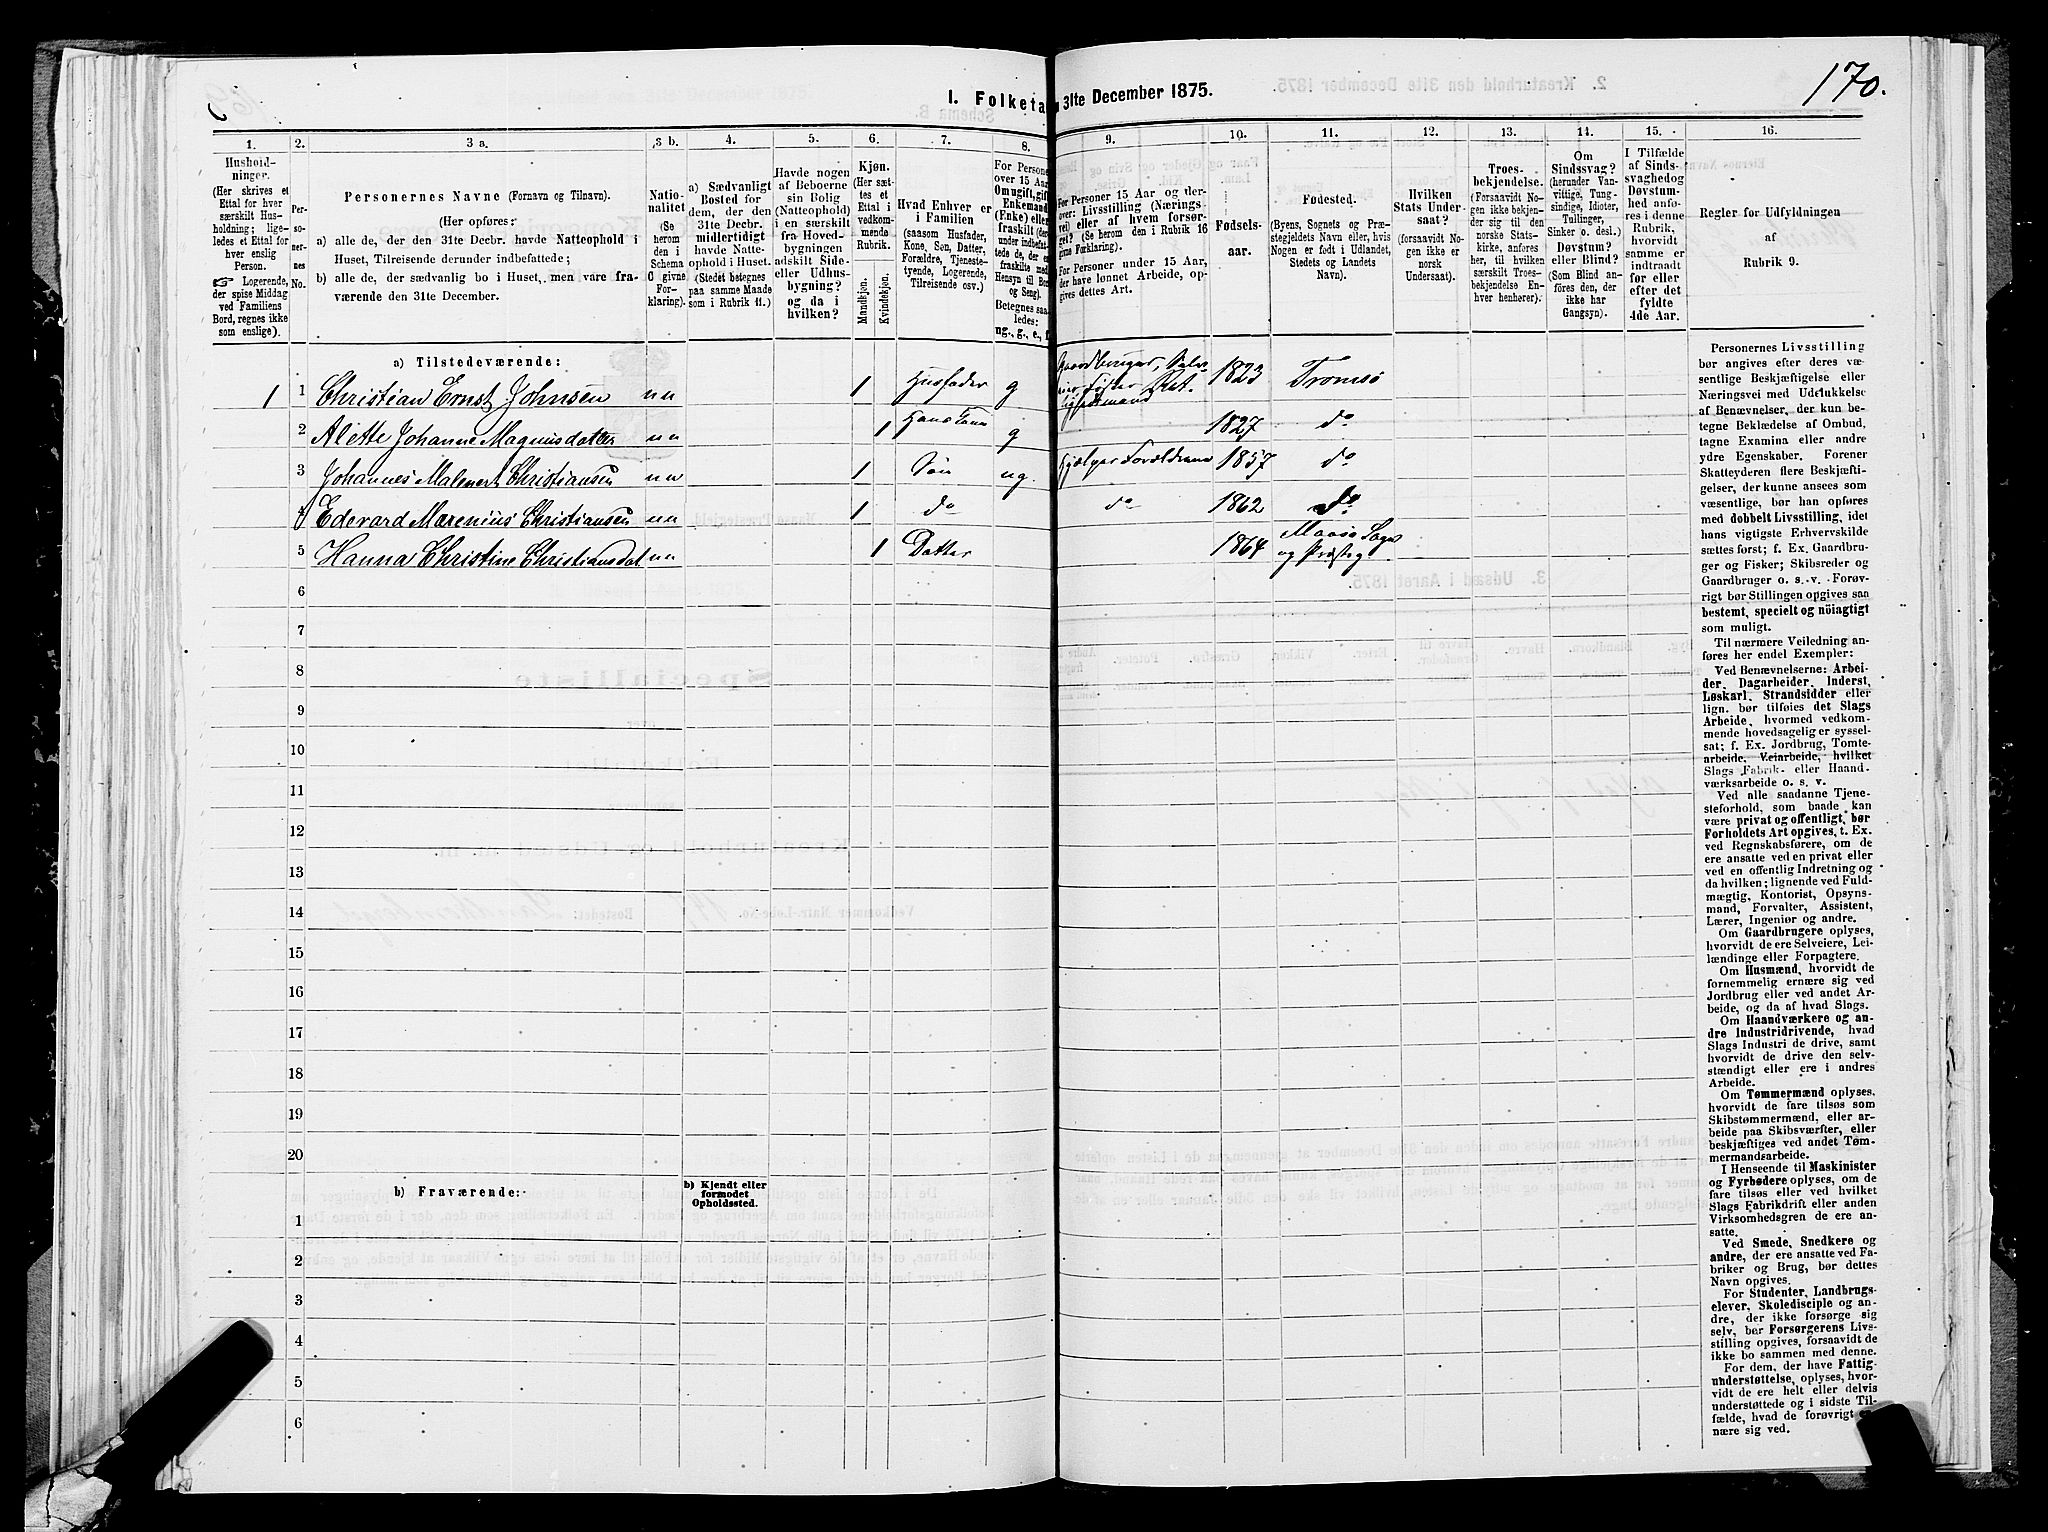 170.
1. Folketa
31te December 1875.
1.
2.
3 a.
3 b.
4.
5.
6.
7.
8.
9.
10.
11.
12.
13.
14.
15.
16.
Hushold-
ninger.
(Her skrives et
Ettal for hver
særskilt Hus-
holdning; lige-
ledes et Ettal for
hver enslig
Person.
☞ Logerende,
der spise Middag
ved Familiens
Bord, regnes ikke
som enslige).
Per-
so-
ner-
nes
No.
Personernes Navne (Fornavn og Tilnavn).
(Her opføres:
a) alle de, der den 31te Decbr. havde Natteophold i
Huset, Tilreisende derunder indbefattede;
b) alle de, der sædvanlig bo i Huset, men vare fra-
værende den 31te December.
Natio-
nalitet
(Se
herom
den i
Schema
C givne
For-
klaring).
a) Sædvanligt
Bosted for
dem, der den
31te Decbr.
midlertidigt
havde Natte-
ophold i Huset.
(Stedet betegnes
paa samme Maade
som i Rubrik 11.)
Havde nogen
af Beboerne
sin Bolig
(Natteophold)
i en særskilt
fra Hoved-
bygningen
adskilt Side-
eller Udhus-
bygning?
og da i
hvilken?
Kjøn.
(Her sæt-
tes et
Ettal i
vedkom-
mende
Rubrik.
Mandkjøn.
Kvindekjøn.
Hvad Enhver er
i Familien
(saasom Husfader,
Kone, Søn, Datter,
Forældre, Tjeneste-
tyende, Logerende,
Tilreisende osv.)
For Persone
over 15 Aar
Om ugift, gift
Enkemand
(Enke) eller
fraskilt (der-
under indbefat-
tede de, der er
fraskilte med
Hensyn til Bor
og Seng).
Betegnes saa-
ledes:
ug., g., e., f.
For Personer 15 Aar og der-
over: Livsstilling (Nærings-
vei) eller af hvem forsør-
get? (Se herom den i Rubrik 16
givne Forklaring).
For Personer under 15 Aar,
der have lønnet Arbeide, op-
gives dettes Art.
Fødsels-
aar.
Fødested.
(Byens, Sognets og Præ-
stegjeldets Navn eller, hvis
Nogen er født i Udlandet,
Stedets og Landets
Navn).
Hvilken
Stats Under-
saat?
(forsaavidt No-
gen ikke er
norsk
Undersaat).
Troes-
bekjendelse.
(Forsaavidt No-
gen ikke bekjen-
der sig til den
norske Stats-
kirke, anføres
her, til hvilken
særskilt Troes-
bekjendelse En-
hver henhører).
Om
Sindssvag?
(herunder Van-
vittige, Tung-
sindige, Idioter,
Tullinger,
Sinker o. desl.)
Døvstum?
eller Blind?
(Som Blind an-
føres den, der
ikke har
Gangsyn).
I Tilfælde
af Sinds-
svaghed og
Døvstum-
hed anfø-
res i denne
Rubrik,
hvorvidt
samme er
indtraadt
før eller
efter det
fyldte
4de Aar.
Regler for Udfyldningen
af
Rubrik 9.
a) Tilstedeværende:
1 1 Christian Ernst Johnsen nn 1 Husfader g Gaardbruger, Selv-
eier Fisker 1823 Tromsø
2 Alette Johanne Magnusdatter nn 1 Hans Kone g 1827 do
3 Johannes Malenert Christiansen nn 1 Søn ug. Hjælper Forældrene 1857 do
4 Edevard Marenius Christiansen nn 1 do do 1862 do
5 Hanna Christine Christiansdat nn 1 Datter 1864 Maasø Sogn
og Præsteg
6
7
8
9
10
11
12
13
14
15
16
17
18
19
20
b) Fraværende:
b) Kjendt eller
formodet
Opholdssted.
1
2
3
4
5
6
Personernes Livsstilling
bør angives efter deres væ-
sentlige Beskjæftigelse eller
Næringsvei med Udelukkelse
af Benævnelser, der kun be-
tegne Beklædelse af Ombud,
tagne Examina eller andre
ydre Egenskaber. Forener
Skatteyderen flere Beskjæfti-
gelser, der kunne ansees som
væsentlige, bør han opføres
med dobbelt Livsstilling, idet
hans vigtigste Erhvervskilde
sættes først; f. Ex. Gaardbru-
ger og Fisker; Skibsreder og
Gaardbruger o. s. v. Forøv-
rigt bør Stillingen opgives saa
bestemt, specielt og nöiagtigt
som muligt.
Til nærmere Veiledning an-
føres her endel Exempler:
Ved Benævnelserne: Arbei-
der, Dagarbeider, Inderst,
Løskarl, Strandsidder eller
lign. bør tilføies det Slags
Arbeide, hvormed vedkom-
mende hovedsagelig er syssel-
sat; f. Ex. Jordbrug, Tomte-
arbeide, Veiarbeide, hvilket
Slags Fabrik- eller Haand-
værksarbeide o. s. v.
Ved alle saadanne Tjene-
steforhold, som baade kan
være privat og offentligt, bør
Forholdets Art opgives, t. Ex.
ved Regnskabsførere, om de
ere ansatte ved en privat eller
ved en offentlig Indretning og
da hvilken; lignende ved Fuld-
mægtig, Kontorist, Opsyns-
mand, Forvalter, Assistent,
Lærer, Ingeniør og andre.
Om Gaardbrugere oplyses,
hvorvidt de ere Selveiere, Lei-
lændinge eller Forpagtere.
Om Husmænd, hvorvidt de
fornemmelig ernære sig ved
Jordbrug eller ved andet Ar-
beide, og da af hvad Slags.
Om Haandværkere og an-
dre Industridrivende, hvad
Slags Industri de drive, samt
hvorvidt de drive den selv-
stændigt eller ere i andres
Arbeide.
Om Tømmermænd oplyses,
hvorvidt de fare tilsøs som
Skibstømmermænd, eller ar-
beide paa Skibsværfter, eller
beskjæftiges ved andet Tøm-
mermandsarbeide.
I Henseende til Maskinister
og Fyrbødere oplyses, om de
fare tilsøs eller ved hvilket
Slags Fabrikdrift eller anden
Virksomhedsgren de ere an-
satte.
Ved Smede, Snedkere og
andre, der ere ansatte ved Fa-
briker og Brug, bør dettes
Navn opgives.
For Studenter, Landbrugs-
elever, Skoledisciple og an-
dre, der ikke forsørge sig
selv, bør Forsørgerens Livs-
stilling opgives, forsaavidt de
ikke bo sammen med denne.
For dem, der have Fattig-
understøttelse, oplyses, hvor-
vidt de ere helt eller delvis
understøttede og i sidste Til-
fælde, hvad de forøvrigt er-
nære sig ved.